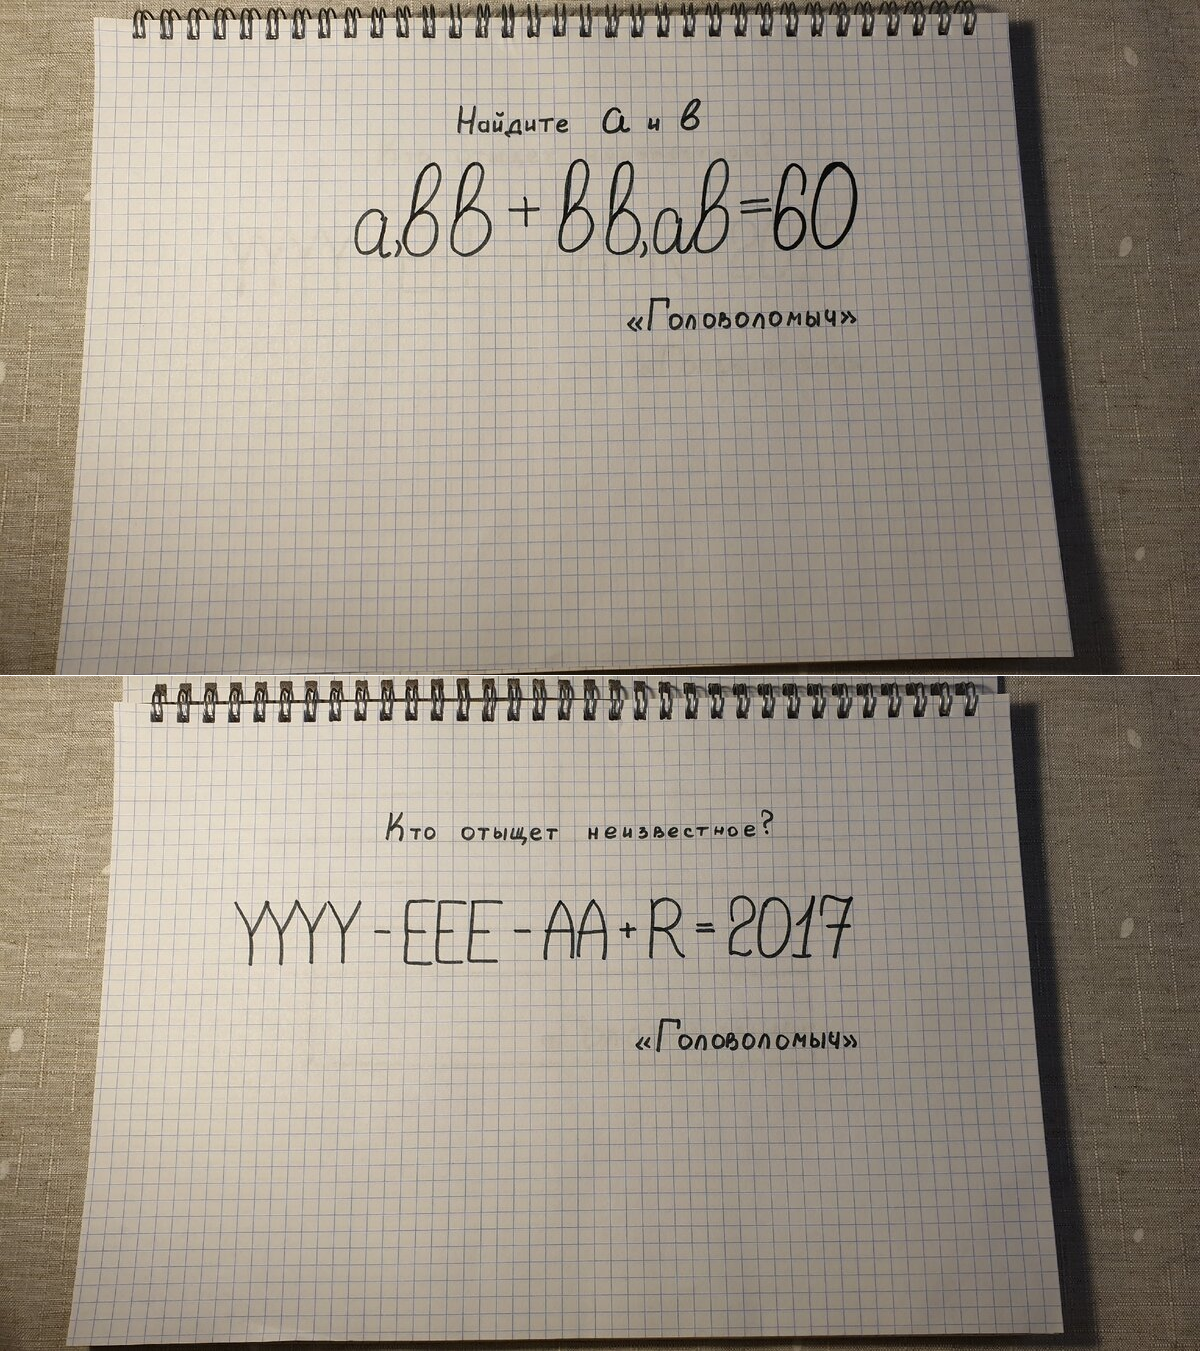 Найдите а и в
а,вв + вв,ав=60
«Головоломыч»
Кто отыщет неизвестное?
YYYY - EEE - AA + R = 2017
«Головоломыч»